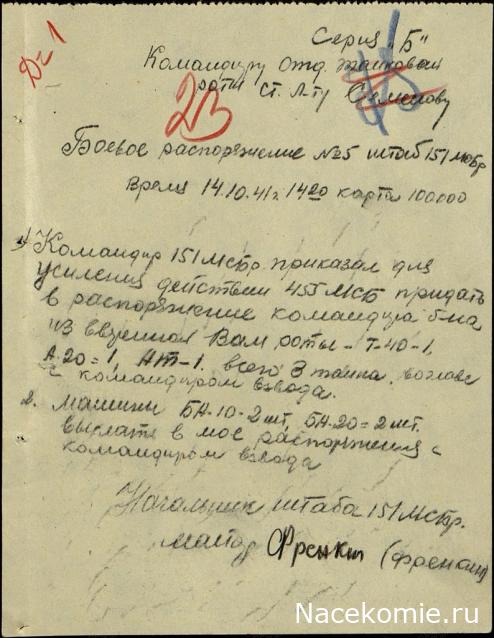 Серия "Б"
Д=1
Командиру отд. танковой
роты ст. л-ту Семенову
23
Боевое распоряжение №5 штаб 151 мсбр
Время 14.10.41 г. 14 20 карта 100000
1) Командир 151 МСбр. приказал для
усиления действий 455 МСБ придать
в распоряжение командира б-на
из вверенной Вам роты - Т-40-1,
А-20=1, АТ-1. всего 3 танка, во главе
с командиром взвода.
2. машины БА-10-2 шт, БА-20=2 шт.
выслать в мое распоряжения с
командиром взвода
Начальник штаба 151 МСбр.
майор Френкин (Френкин)
Nacekomie.ru